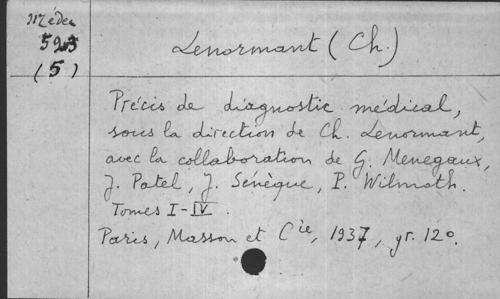 Médec
525
(5)
Lenormant (Ch.)
Précis de diagnostic médical,
sous la direction de Ch. Lenormant,
avec la collaboration de G. Menegaux,
J. Patel, J. Sénèque, P. Wilmoth.
Tomes I-IV.
Paris, Masson et Cie, 1937, gr. 12o.